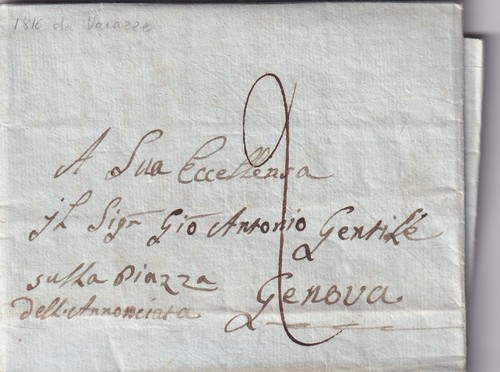 1816 da Varazze
2
A Sua Eccellenza
il Sigr Gio Antonio Gentile
a
sulla Piazza Genova
dell'Annonciata